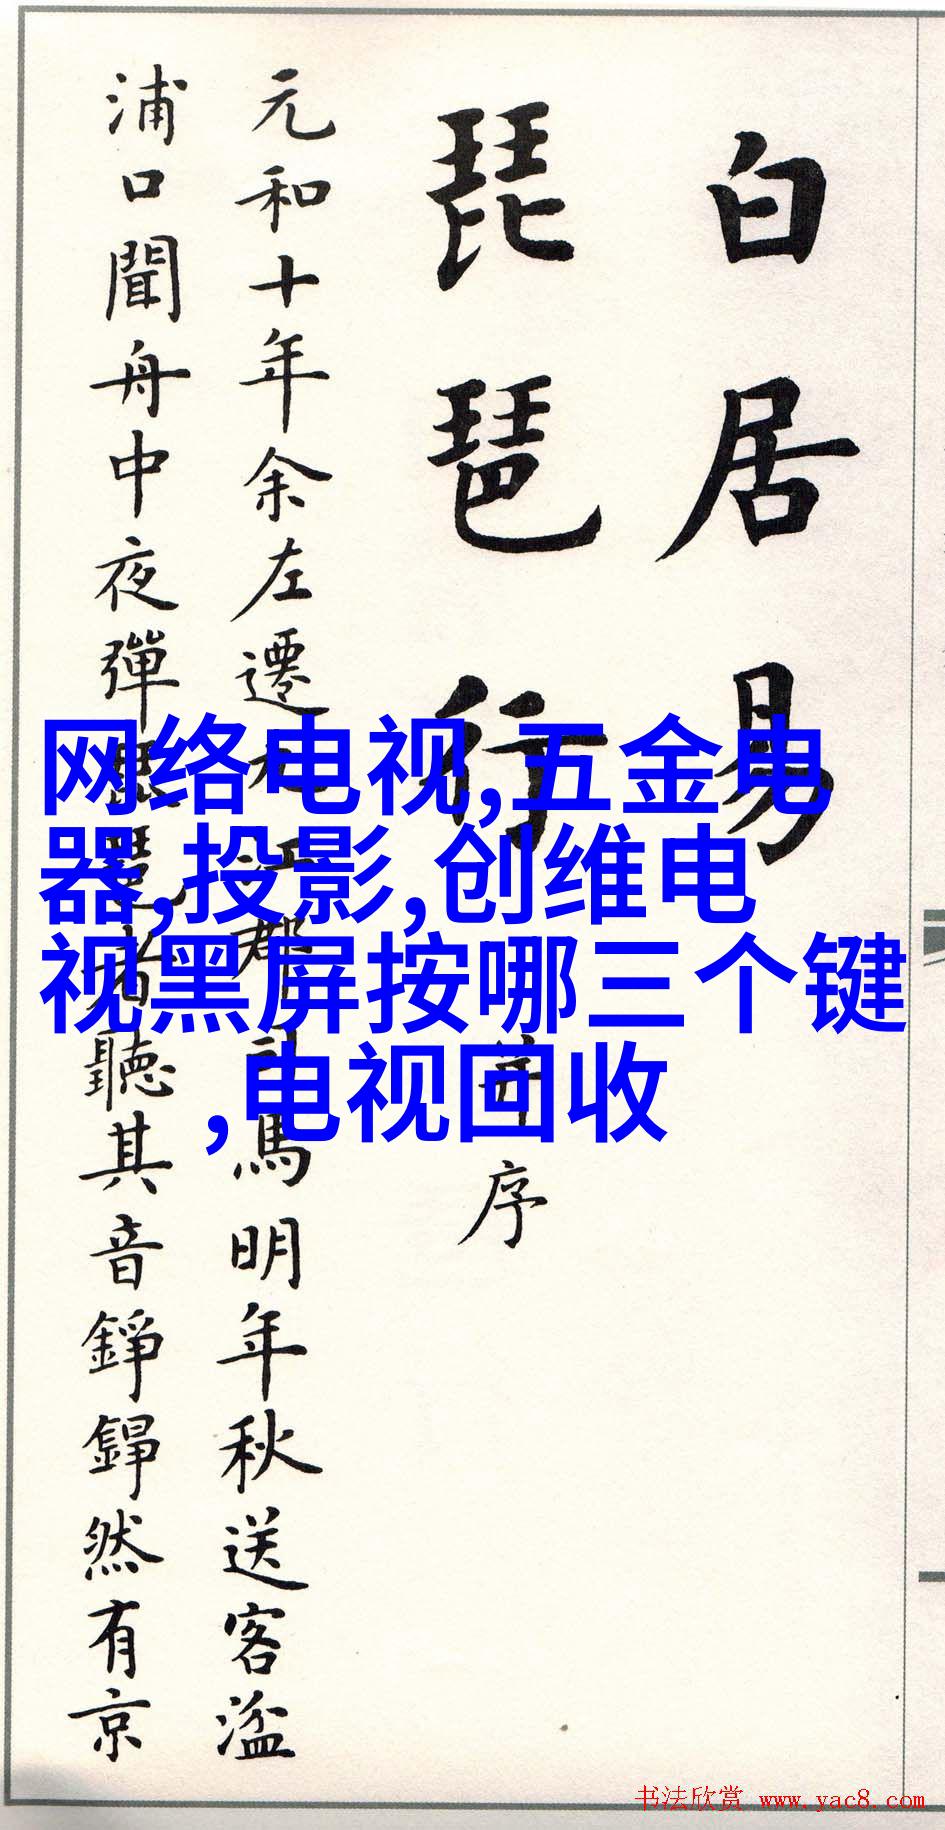 白居易
琵琶行
并序
元和十年余左遷九江郡司馬明年秋送客湓
浦口聞舟中夜彈琵琶者聽其音錚錚然有京
网络电视,五金电
器,投影,创维电
视黑屏按哪三个键
,电视回收
书法欣赏 www.yac8.com